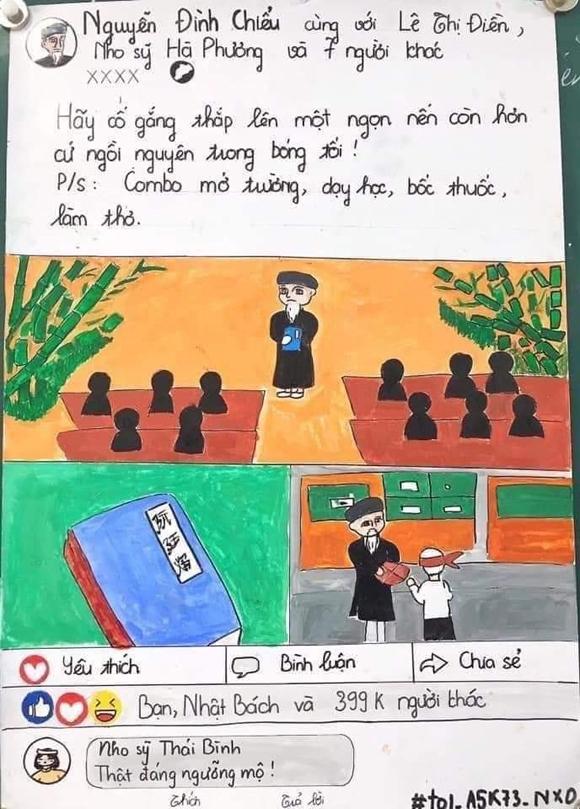 Nguyễn Đình Chiểu cùng với Lê Thị Điền,
Nho sỹ Hà Phương và 7 người khác
XXXX
Hãy cố gắng thắp lên một ngọn nến còn hơn
cứ ngồi nguyên trong bóng tối !
P/s : Combo mở trường, dạy học, bốc thuốc,
làm thơ.
阮廷炤
Yêu thích
Bình luận
Chia sẻ
Bạn, Nhật Bách và 399K người khác
Nho sỹ Thái Bình
Thật đáng ngưỡng mộ !
Thích Trả lời
#to1_A5K73_NXD